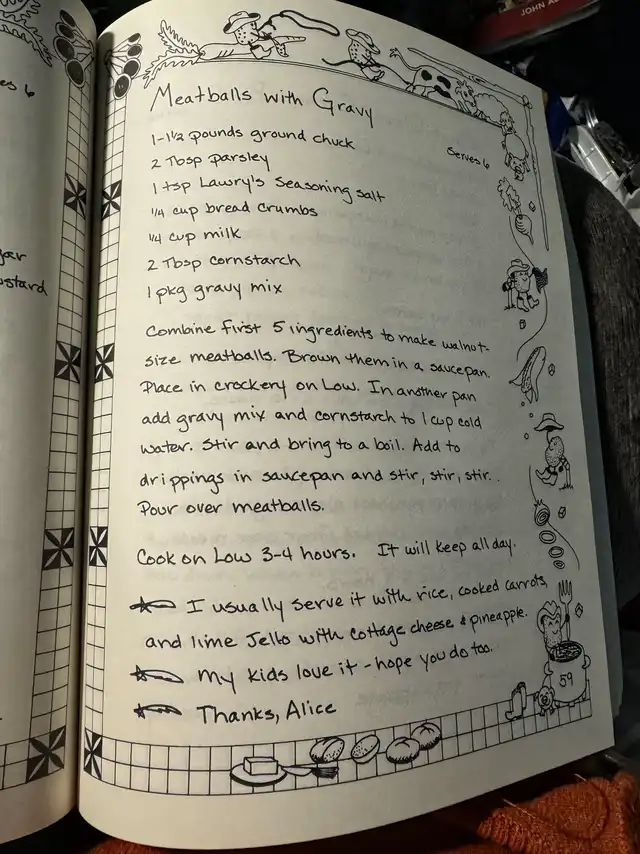 JOHN A
es 6
gar
ustard
Meatballs with Gravy
Serves 6
1-1½ pounds ground chuck
2 Tbsp parsley
1 tsp Lawry's Seasoning salt
¼ cup bread crumbs
¼ cup milk
2 Tbsp cornstarch
1 pkg gravy mix
Combine first 5 ingredients to make walnut-
size meatballs. Brown them in a saucepan.
Place in crockery on Low. In another pan
add gravy mix and cornstarch to 1 cup cold
water. Stir and bring to a boil. Add to
drippings in saucepan and stir, stir, stir.
Pour over meatballs.
Cook on Low 3-4 hours. It will keep all day.
I usually serve it with rice, cooked carrots,
and lime Jello with cottage cheese & pineapple.
My kids love it - hope you do too.
Thanks, Alice
59